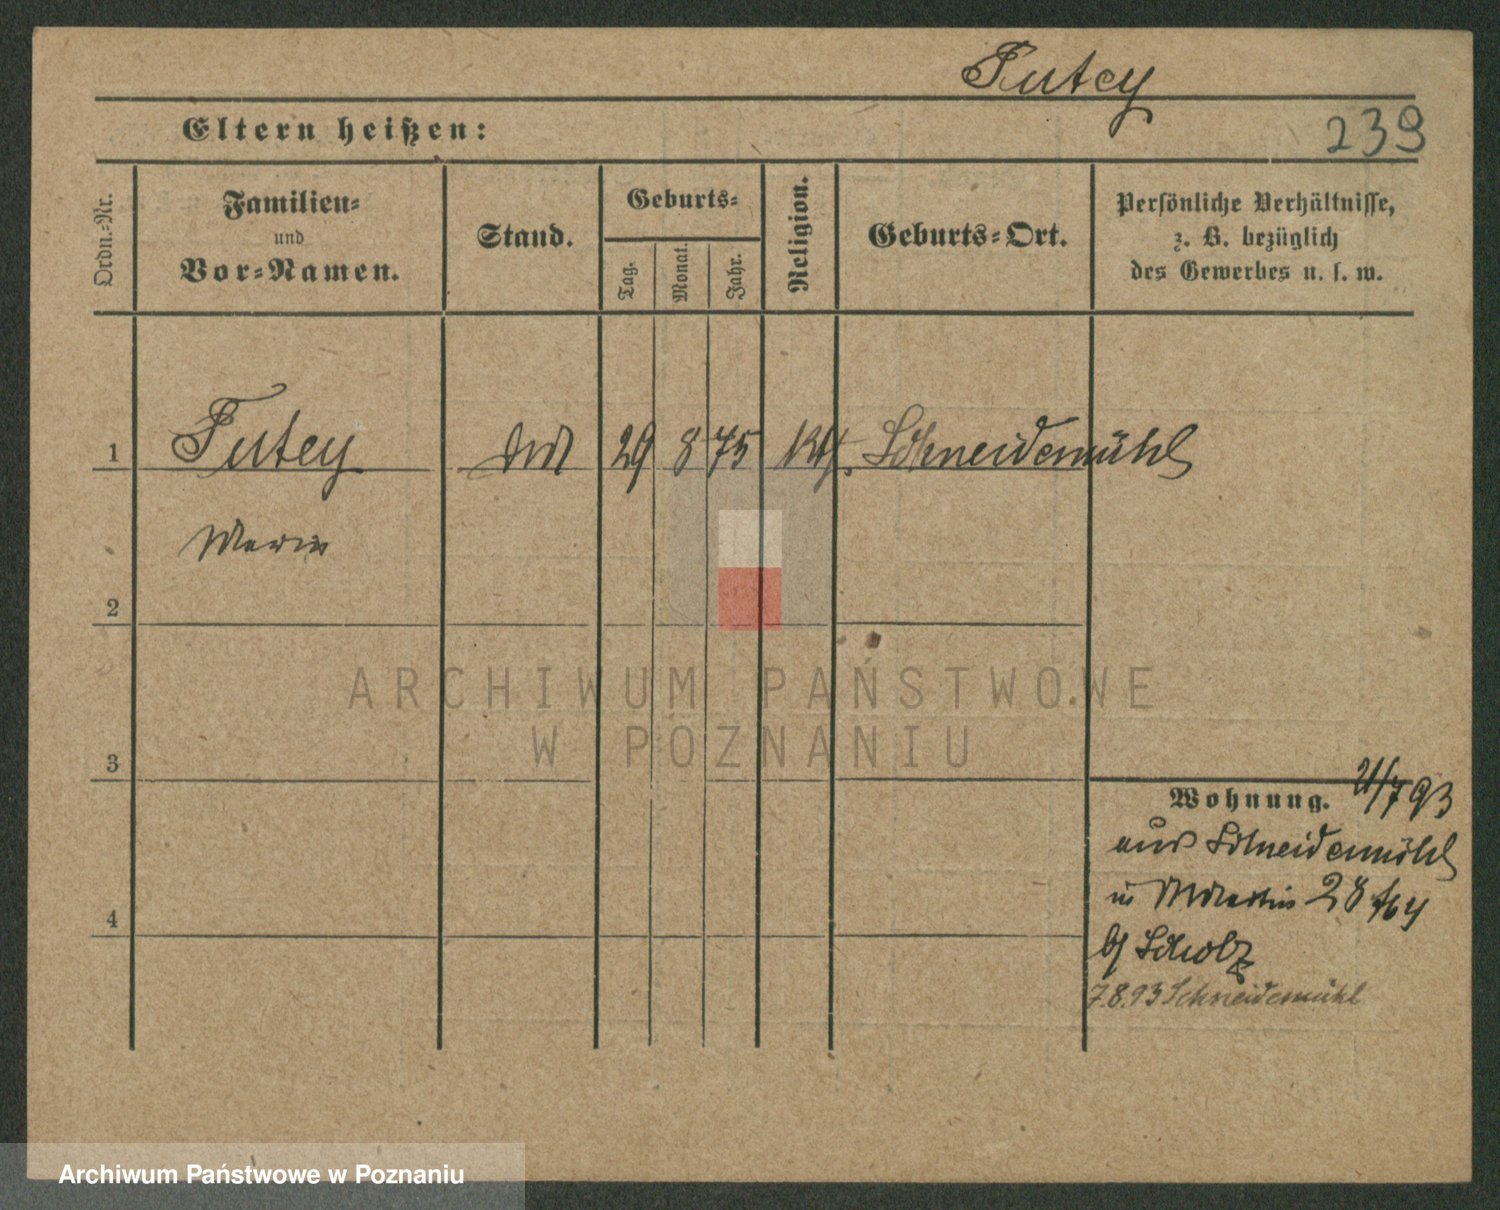 Futey
Eltern heißen:
239
Ordn.-Nr.
Familien-
und
Vor-Namen.
Stand.
Geburts-
Tag.
Monat.
Jahr.
Religion.
Geburts-Ort.
Persönliche Verhältnisse,
z. B. bezüglich
des Gewerbes u. s. w.
1 Futey 29 8 75 kth. Schneidemühl
Marie
2
ARCHIWUM PAŃSTWOWE
W POZNANIU
3
Wohnung. 21/7 93
aus Schneidemühl
in 28
4
b/ Scholz
7.8.93 Schneidemühl
Archiwum Państwowe w Poznaniu